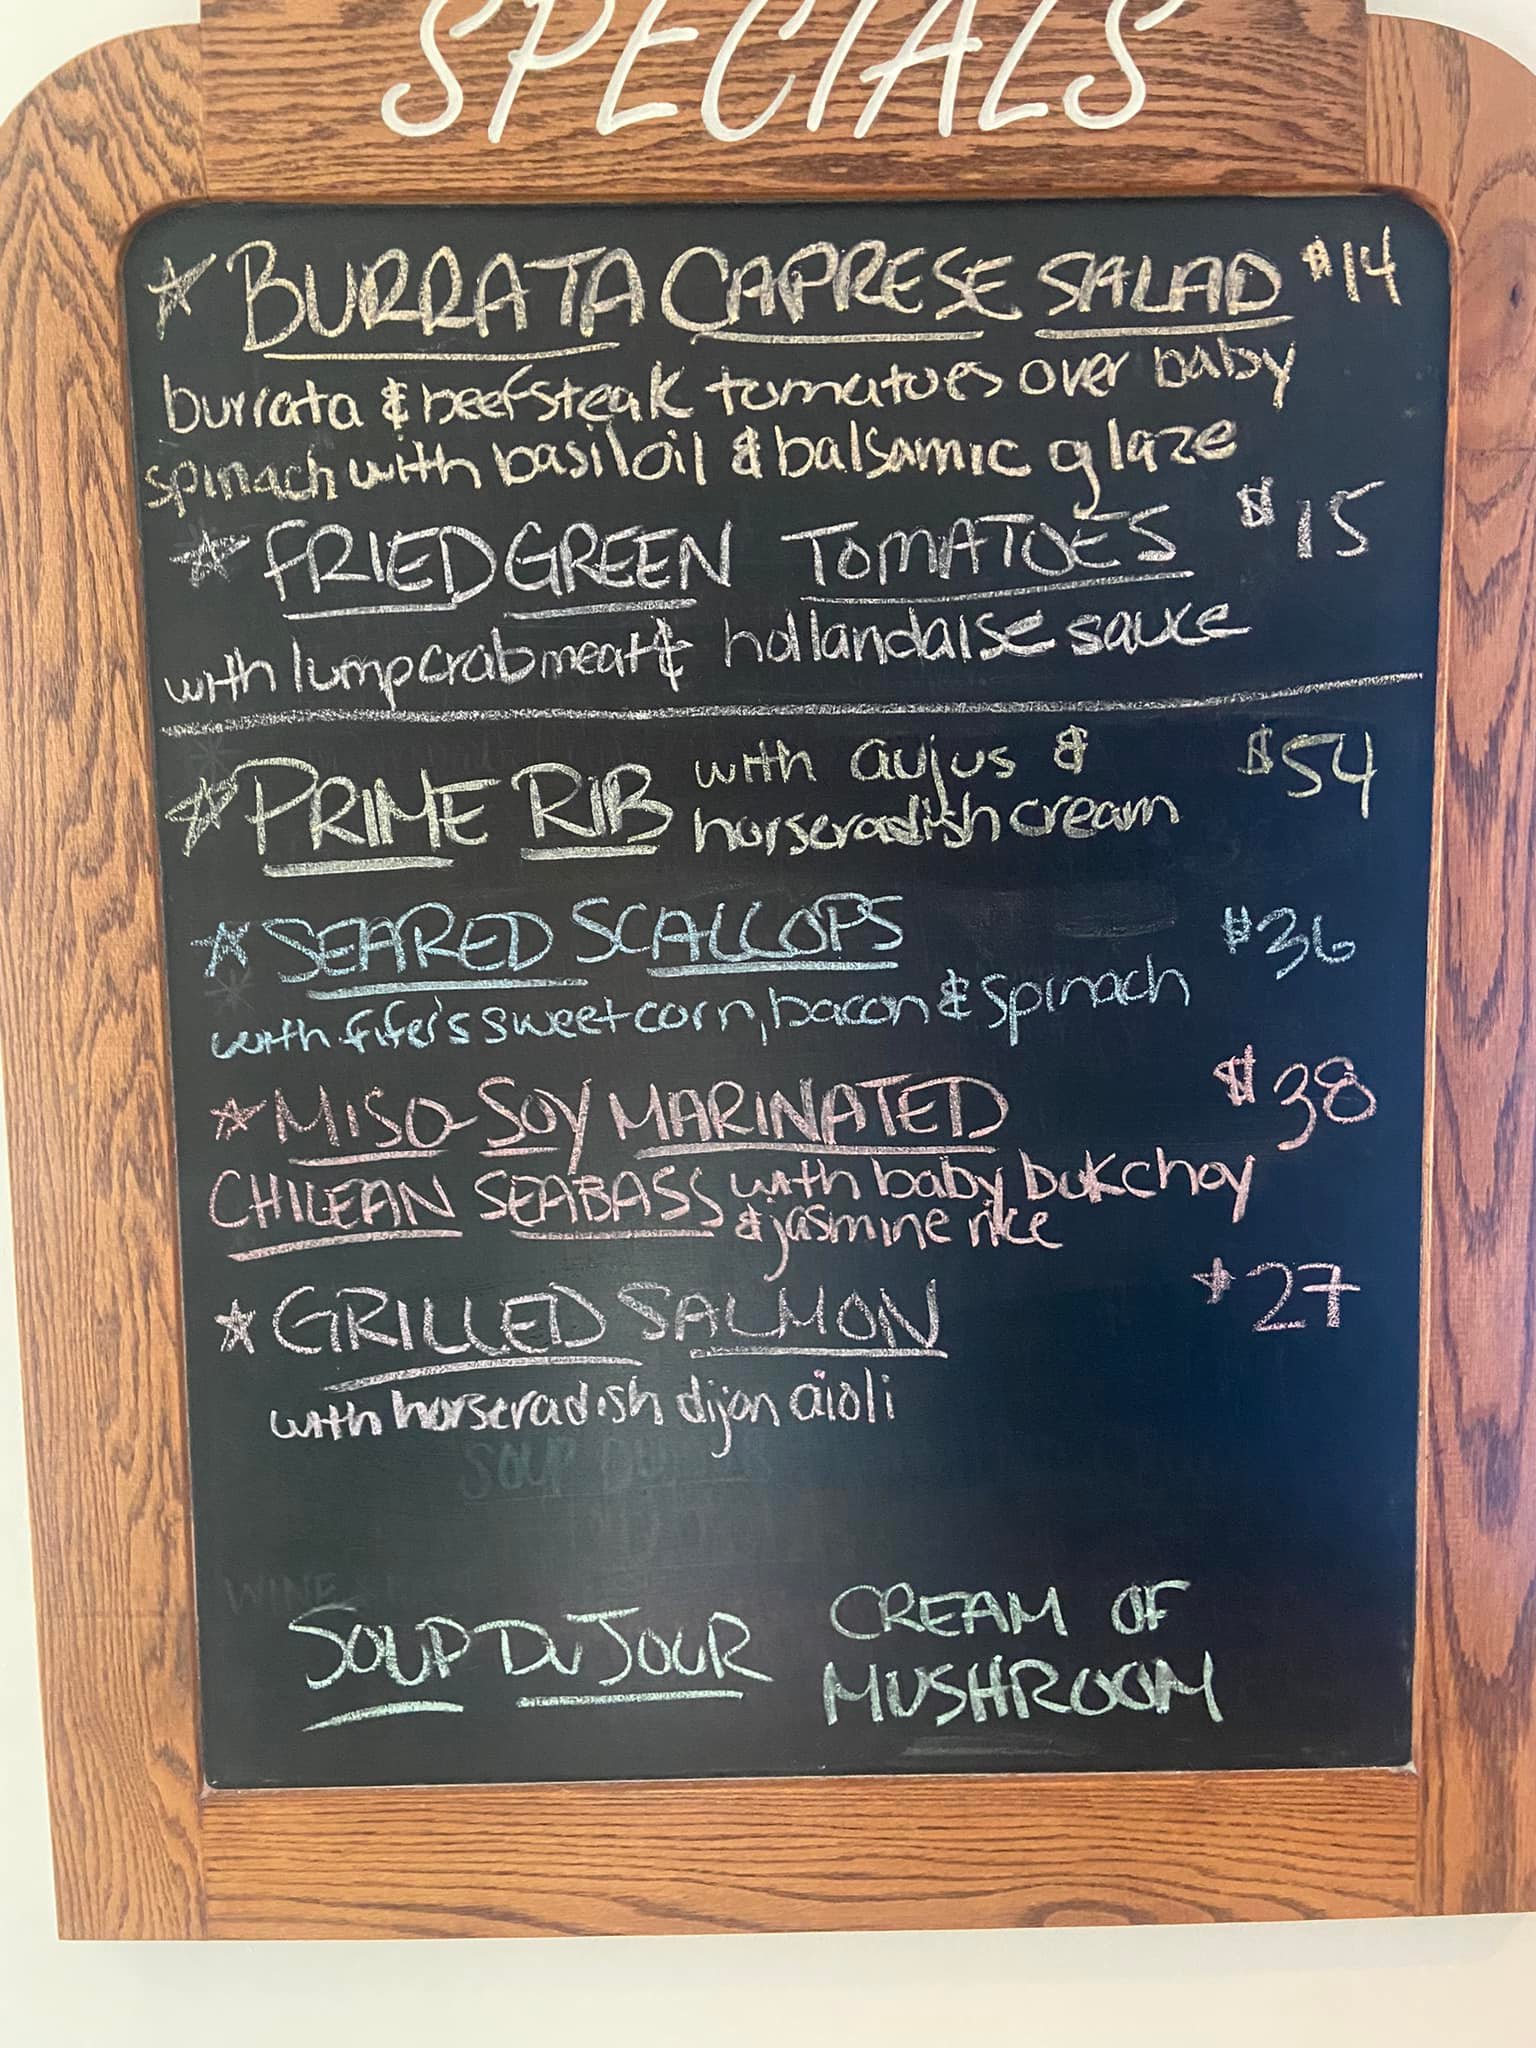 SPECIALS
BURRATA CAPRESE SALAD $14
burrata & beefsteak tomatoes over baby
spinach with basil oil & balsamic glaze
FRIED GREEN TOMATOES $15
with lump crab meat & hollandaise sauce
PRIME RIB with aujus & $54
horseradish cream
SEARED SCALLOPS $36
with fifer's sweet corn, bacon & spinach
MISO-SOY MARINATED $38
CHILEAN SEABASS with baby bok choy
& jasmine rice
GRILLED SALMON $27
with horseradish dijon aioli
SOUP DU
WINE
SOUP DU JOUR CREAM OF
MUSHROOM